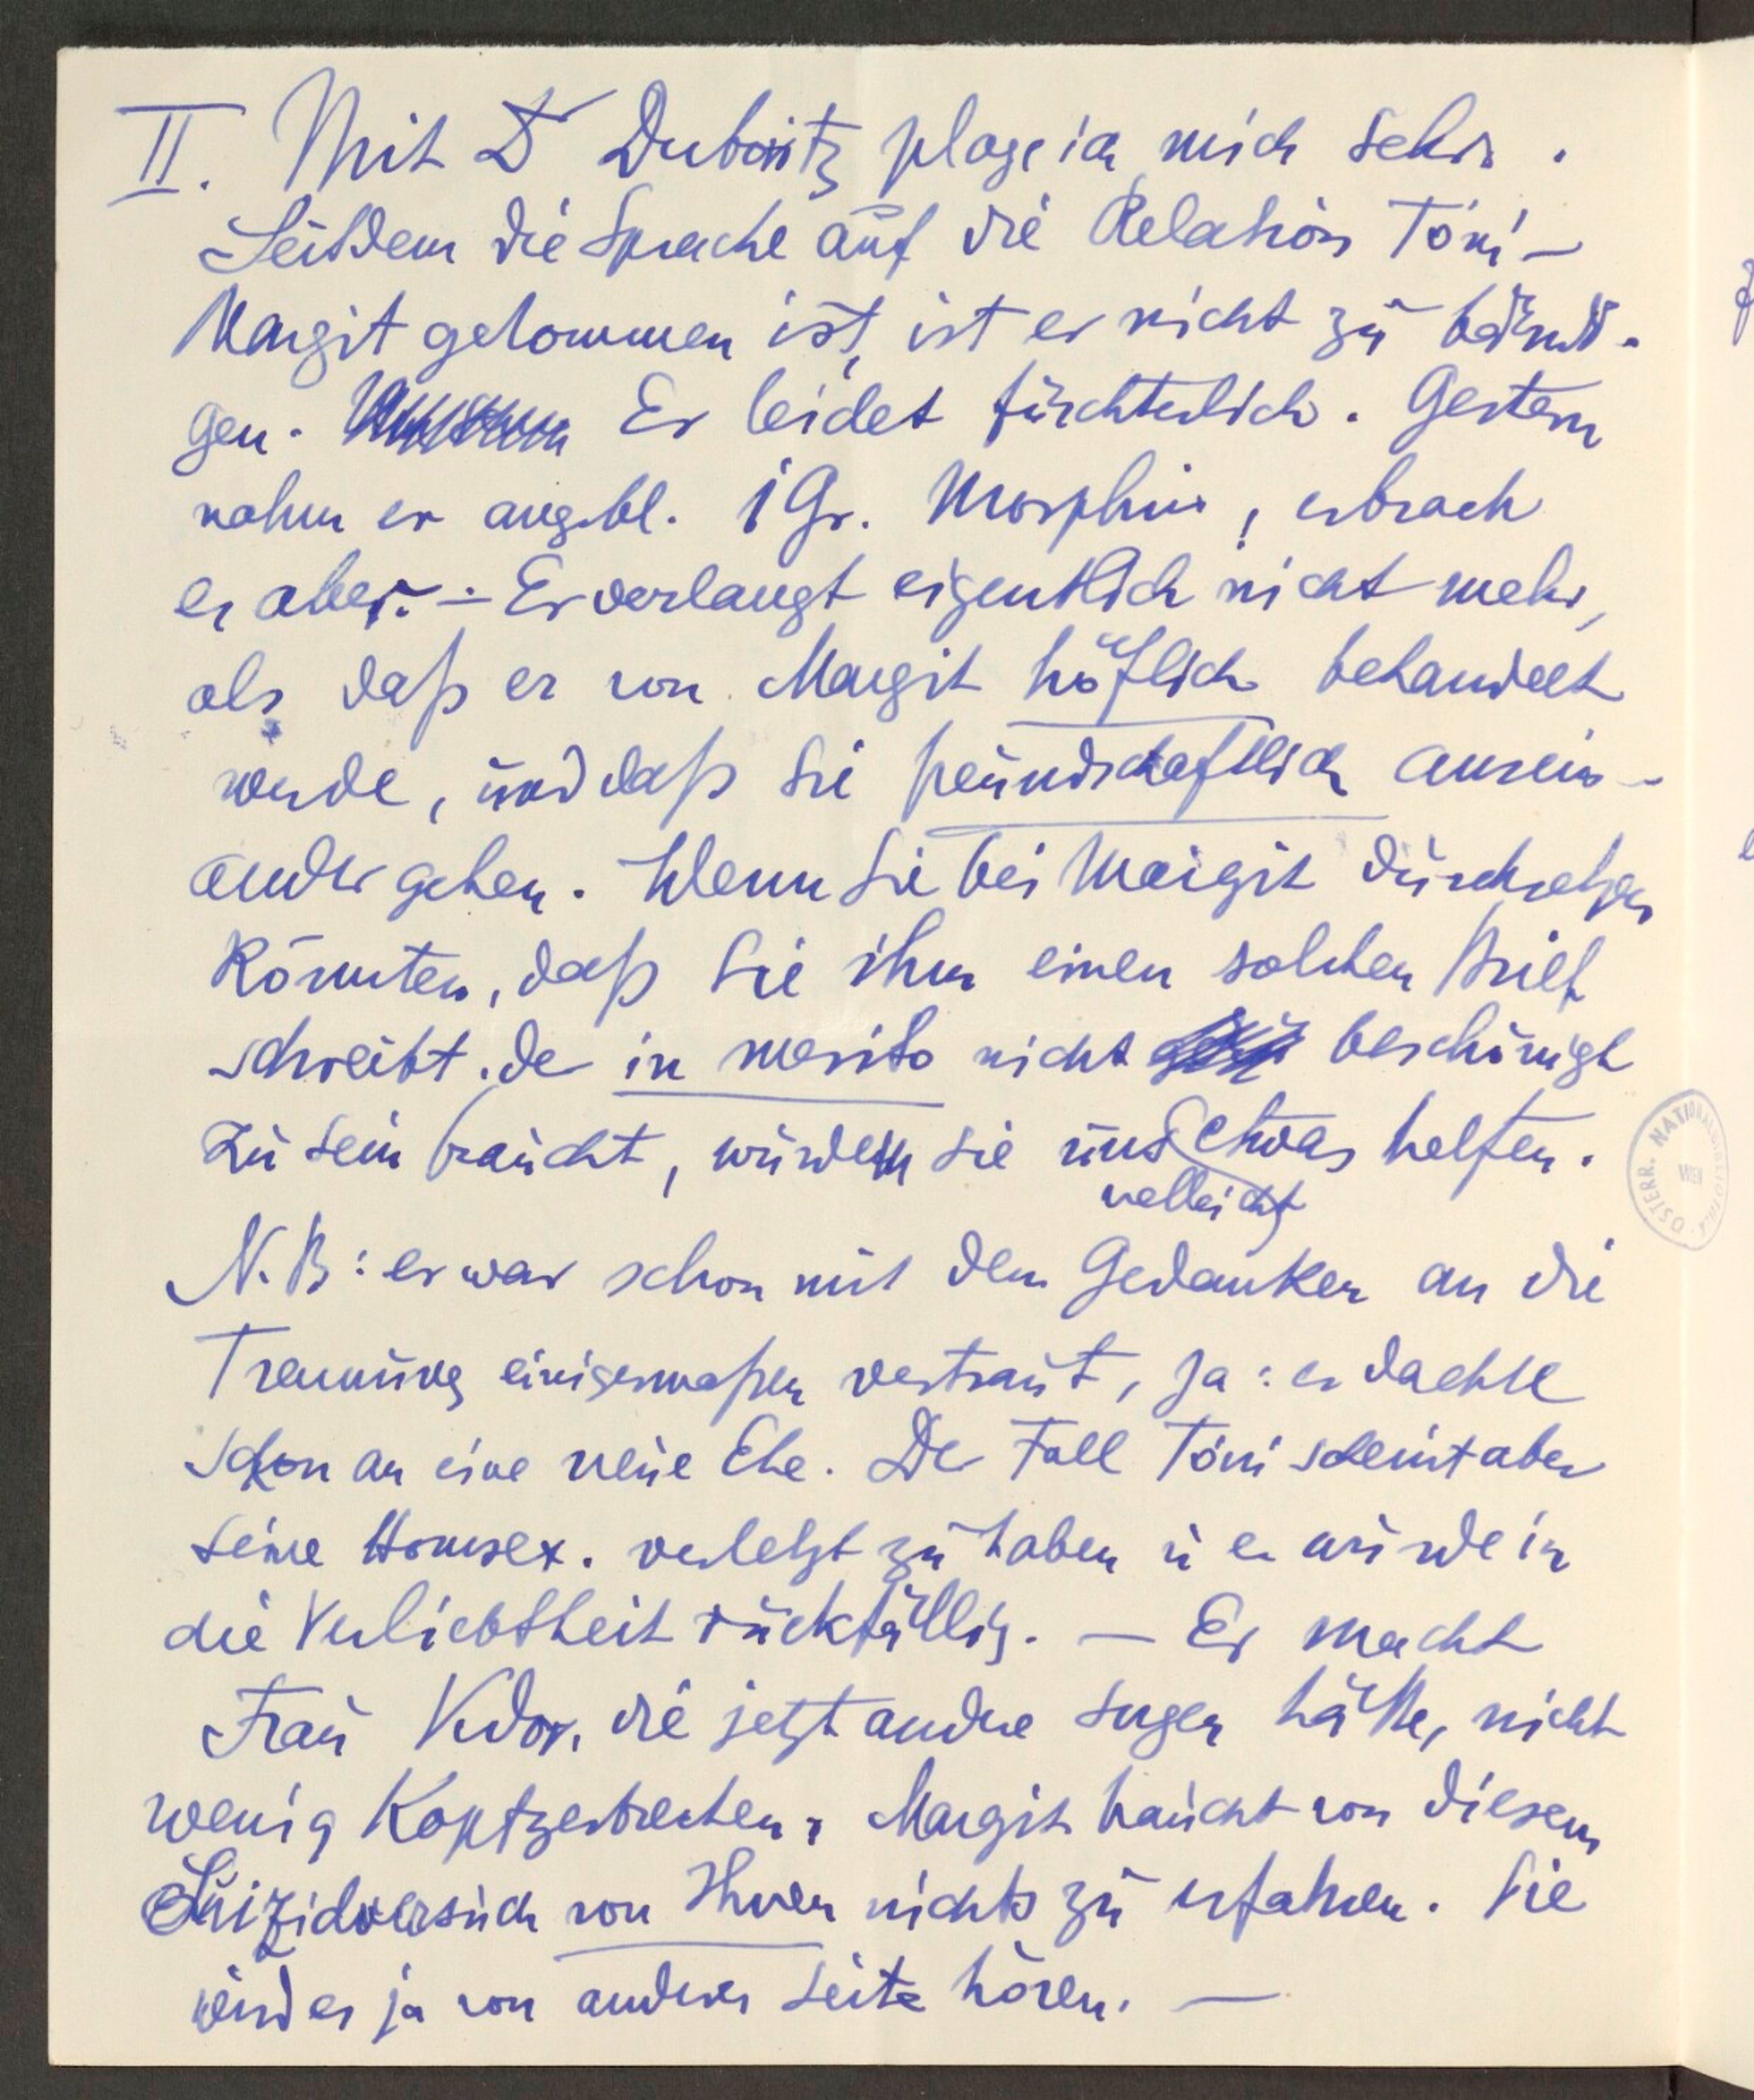 II. Mit Dr Dubovitz plage ich mich sehr.
Seitdem die Sprache auf die Relation Toni-
Margit gekommen ist, ist er nicht zu bändi-
gen. Er leidet fürchterlich. Gestern
nahm er angebl. 1 Gr. Morphin, erbrach
es aber. – Er verlangt eigentlich nicht mehr,
als daß er von Margit höflich behandelt
werde, und daß sie freundschaftlich ausein-
ander gehen. Wenn Sie bei Margit durchsetzen
könnten, daß sie ihm einen solchen Brief
schreibt, der in merito nicht beschönigt
zu sein braucht, würden Sie uns etwas helfen.
vielleicht
N.B: er war schon mit dem Gedanken an die
Trennung einigermaßen vertraut, ja: er dachte
schon an eine neue Ehe. Der Fall Toni scheint aber
seine Homsex. verletzt zu haben u er wurde in
die Verliebtheit rückfällig. — Er macht
Frau Vidor, die jetzt andre Sorgen hätte, nicht
wenig Kopfzerbrechen. Margit braucht von diesem
Suizidversuch von Ihnen nichts zu erfahren. Sie
wird es ja von anderer Seite hören. —
ÖSTERR. NATIONALBIBLIOTHEK